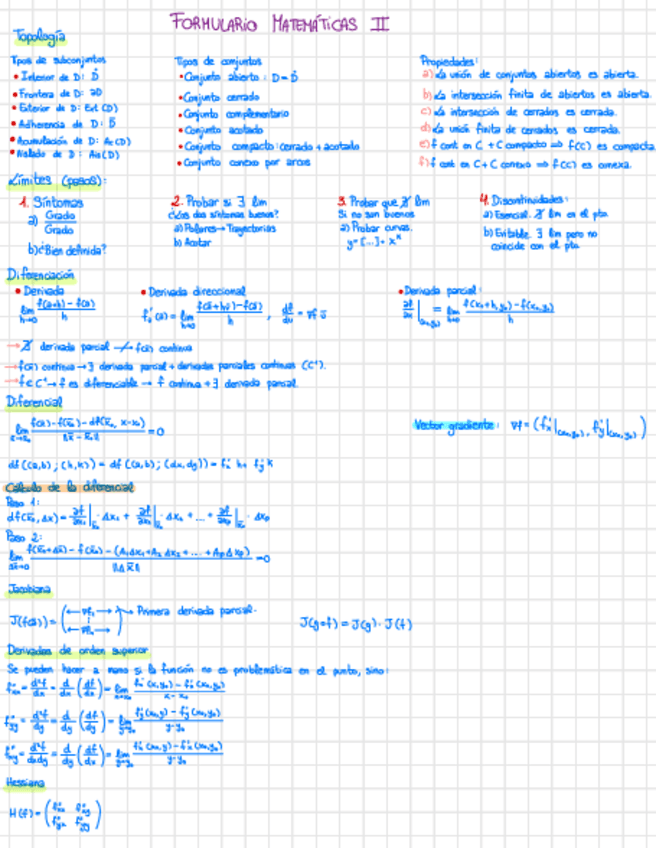 FORMULARIO MATEMÁTICAS II
Topología
Tipos de subconjuntos
• Interior de D: D̊
• Frontera de D: ∂D
• Exterior de D: Ext (D)
• Adherencia de D: D̄
• Acumulación de D: Ac(D)
• Aislado de D: Ais(D)
Tipos de conjuntos
• Conjunto abierto: D=D̊
• Conjunto cerrado
• Conjunto complementario
• Conjunto acotado
• Conjunto compacto: cerrado + acotado
• Conjunto conexo por arcos
Propiedades:
a) La unión de conjuntos abiertos es abierta.
b) La intersección finita de abiertos es abierta.
c) La intersección de cerrados es cerrada.
d) La unión finita de cerrados es cerrada.
e) f cont en C + C compacto ⇒ f(C) es compacta
f) f cont en C + C conexa ⇒ f(C) es conexa.
Límites (pasos):
1. Síntomas
a) Grado/Grado
b) ¿Bien definida?
2. Probar si ∃ lim
¿Los dos síntomas buenos?
a) Polares → Trayectorias
b) Acotar
3. Probar que ∄ lim
Si no son buenos
a) Probar curvas.
y=[...]+x^k
4. Discontinuidades:
a) Esencial. ∄ lim en el pto
b) Evitable. ∃ lim pero no
coincide con el pto
Diferenciación
• Derivada
lim h→0 (f(a+h)-f(a))/h
• Derivada direccional
lim h→0 (f(ā+hv̄)-f(ā))/h
• Derivada parcial:
= lim h→0 (f(x₀+h,y₀)-f(x₀,y₀))/h
→ ∄ derivada parcial
→ f(x̄) continua → ∃ derivada parcial + derivadas parciales continuas (C¹).
→ f∈C¹ → f es diferenciable → f continua + ∃ derivada parcial.
Diferencial
=0
Vector gradiente:
df((a,b);(h,k)) = df((a,b);(dx,dy)) = f'x h + f'y k
Cálculo de la diferencial
Paso 1:
df(x̄₀,Δx) = ∂f/∂x₁|x̄₀ · Δx₁ + ∂f/∂x₂|x̄₀ · Δx₂ + ... + ∂f/∂xp|x̄₀ · Δxp
Paso 2:
=0
Jacobiana
J(f(ā)) = Primera derivada parcial.
J(g∘f) = J(g) · J(f)
Derivadas de orden superior
Se pueden hacer a mano si la función no es problemática en el punto, sino:
f''xx = d²f/dx = d/dx (df/dx) = lim
f''yy = d²f/dy = d/dy (df/dy) = lim
f''xy = d²f/dxdy = d/dy (df/dx) = lim
Hessiana
H(f) = (f''xx f''xy
f''yx f''yy)